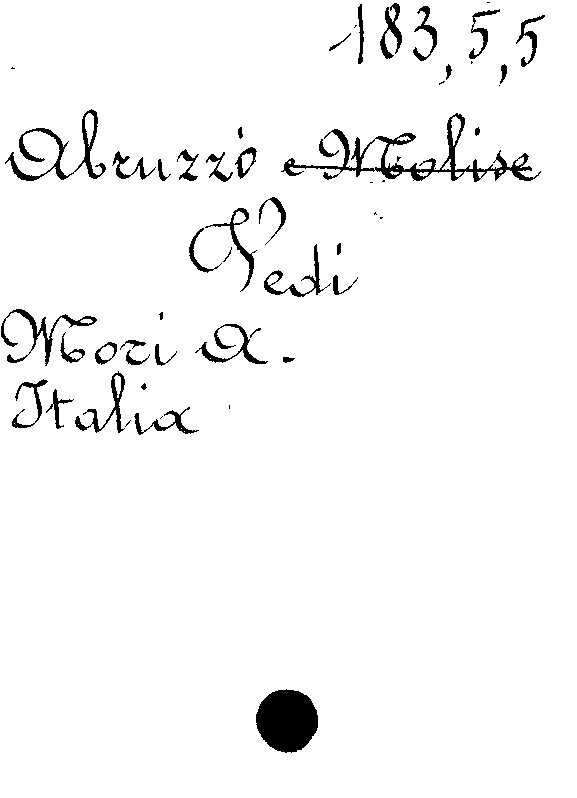 183,5,5
Abruzzo e Molise
Vedi
Mori A.
Italia